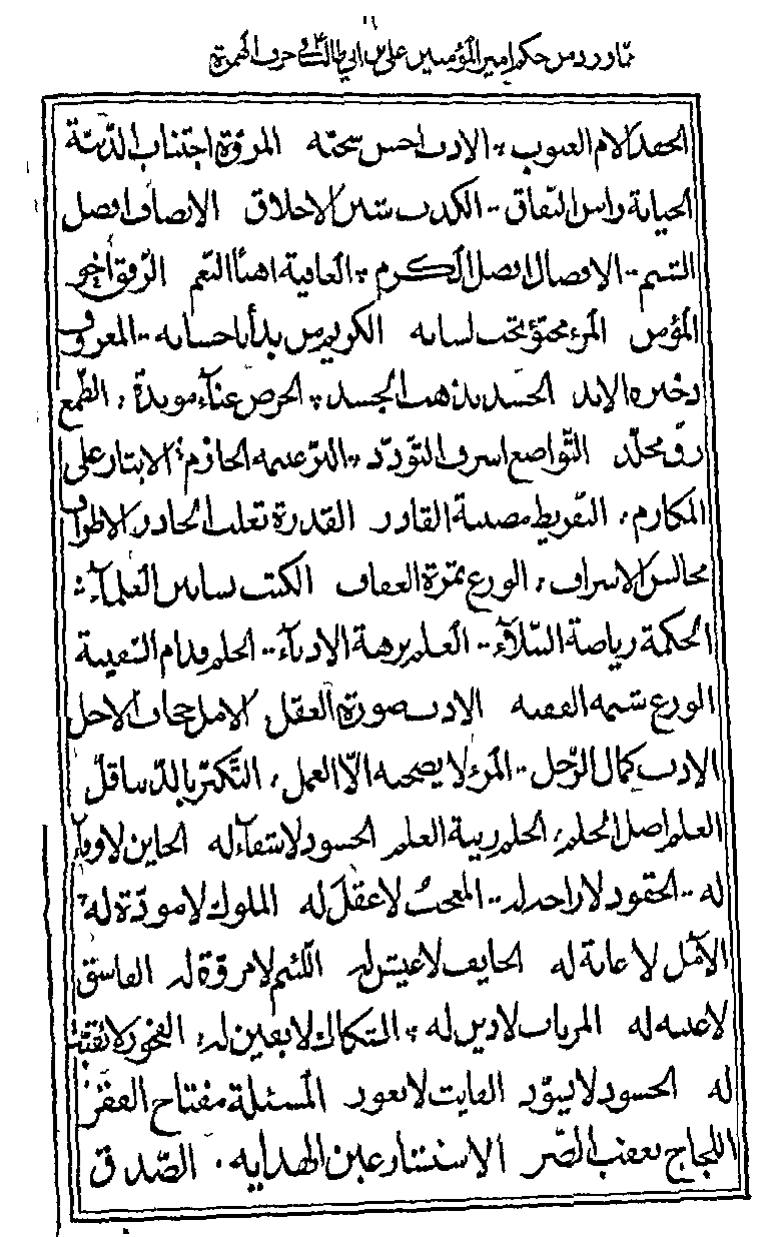 مما ورد من حكم امير المؤمنين علي بن ابي طالب حرف الهمزة
الحقد الام العيوب الادب احسن سجية المروة اجتناب الدنية
الخيانة راس النفاق الكذب شين الاخلاق الانصاف افضل
الشيم الافضال افضل الكرم العافية اهنأ النعم الرفق اخو
المؤمن المرء مخبوء تحت لسانه الكريم من بدأ باحسانه المعروف
ذخيرة الابد الحسد يذهب الجسد الحرص عناء موبد الطمع
رق مخلد التواضع اشرف التودد الحازم على
المكارم التفريط مصيبة القادر القدرة الحاذر الاطراف
مجالس الاشراف الورع ثمرة العفاف الكتب بساتين العلماء
الحكمة رياضة النبلاء العلم نزهة الادباء الحلم فدام السفيه
الورع شيمة الفقيه الادب صورة العقل الامل حجاب الاجل
الادب كمال الرجل المرء لا يصحبه الا العمل التكثر بالدنيا قل
العلم اصل الحلم الحلم زينة العلم الحسود لا شفاء له الخاين لا وفاء
له الحقود لا راحة له المعجب لا عقل له الملوك لا مودة له
الامل لا غاية له الخايف لا عيش له اللئيم لا مروة له الفاسق
لا غيبة له المرتاب لا دين له الشكاك لا يقين له الفجور لا تقية
له الحسود لا يسود الفايت لا يعود المسئلة مفتاح الفقر
اللجاج يعقب الضر الاستشارة عين الهداية الصدق